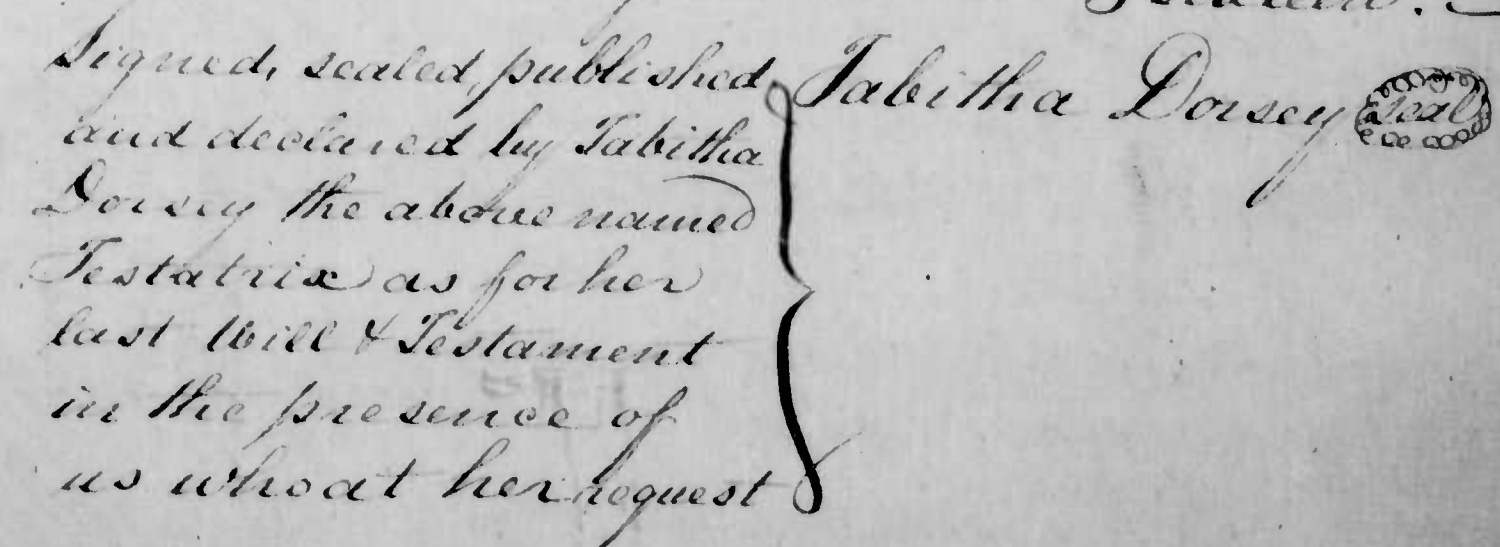 Signed, sealed, published
and declared by Tabitha
Dorsey the above named
Testatrix as for her
last Will & Testament
in the presence of
us who at her request
Tabitha Dorsey seal